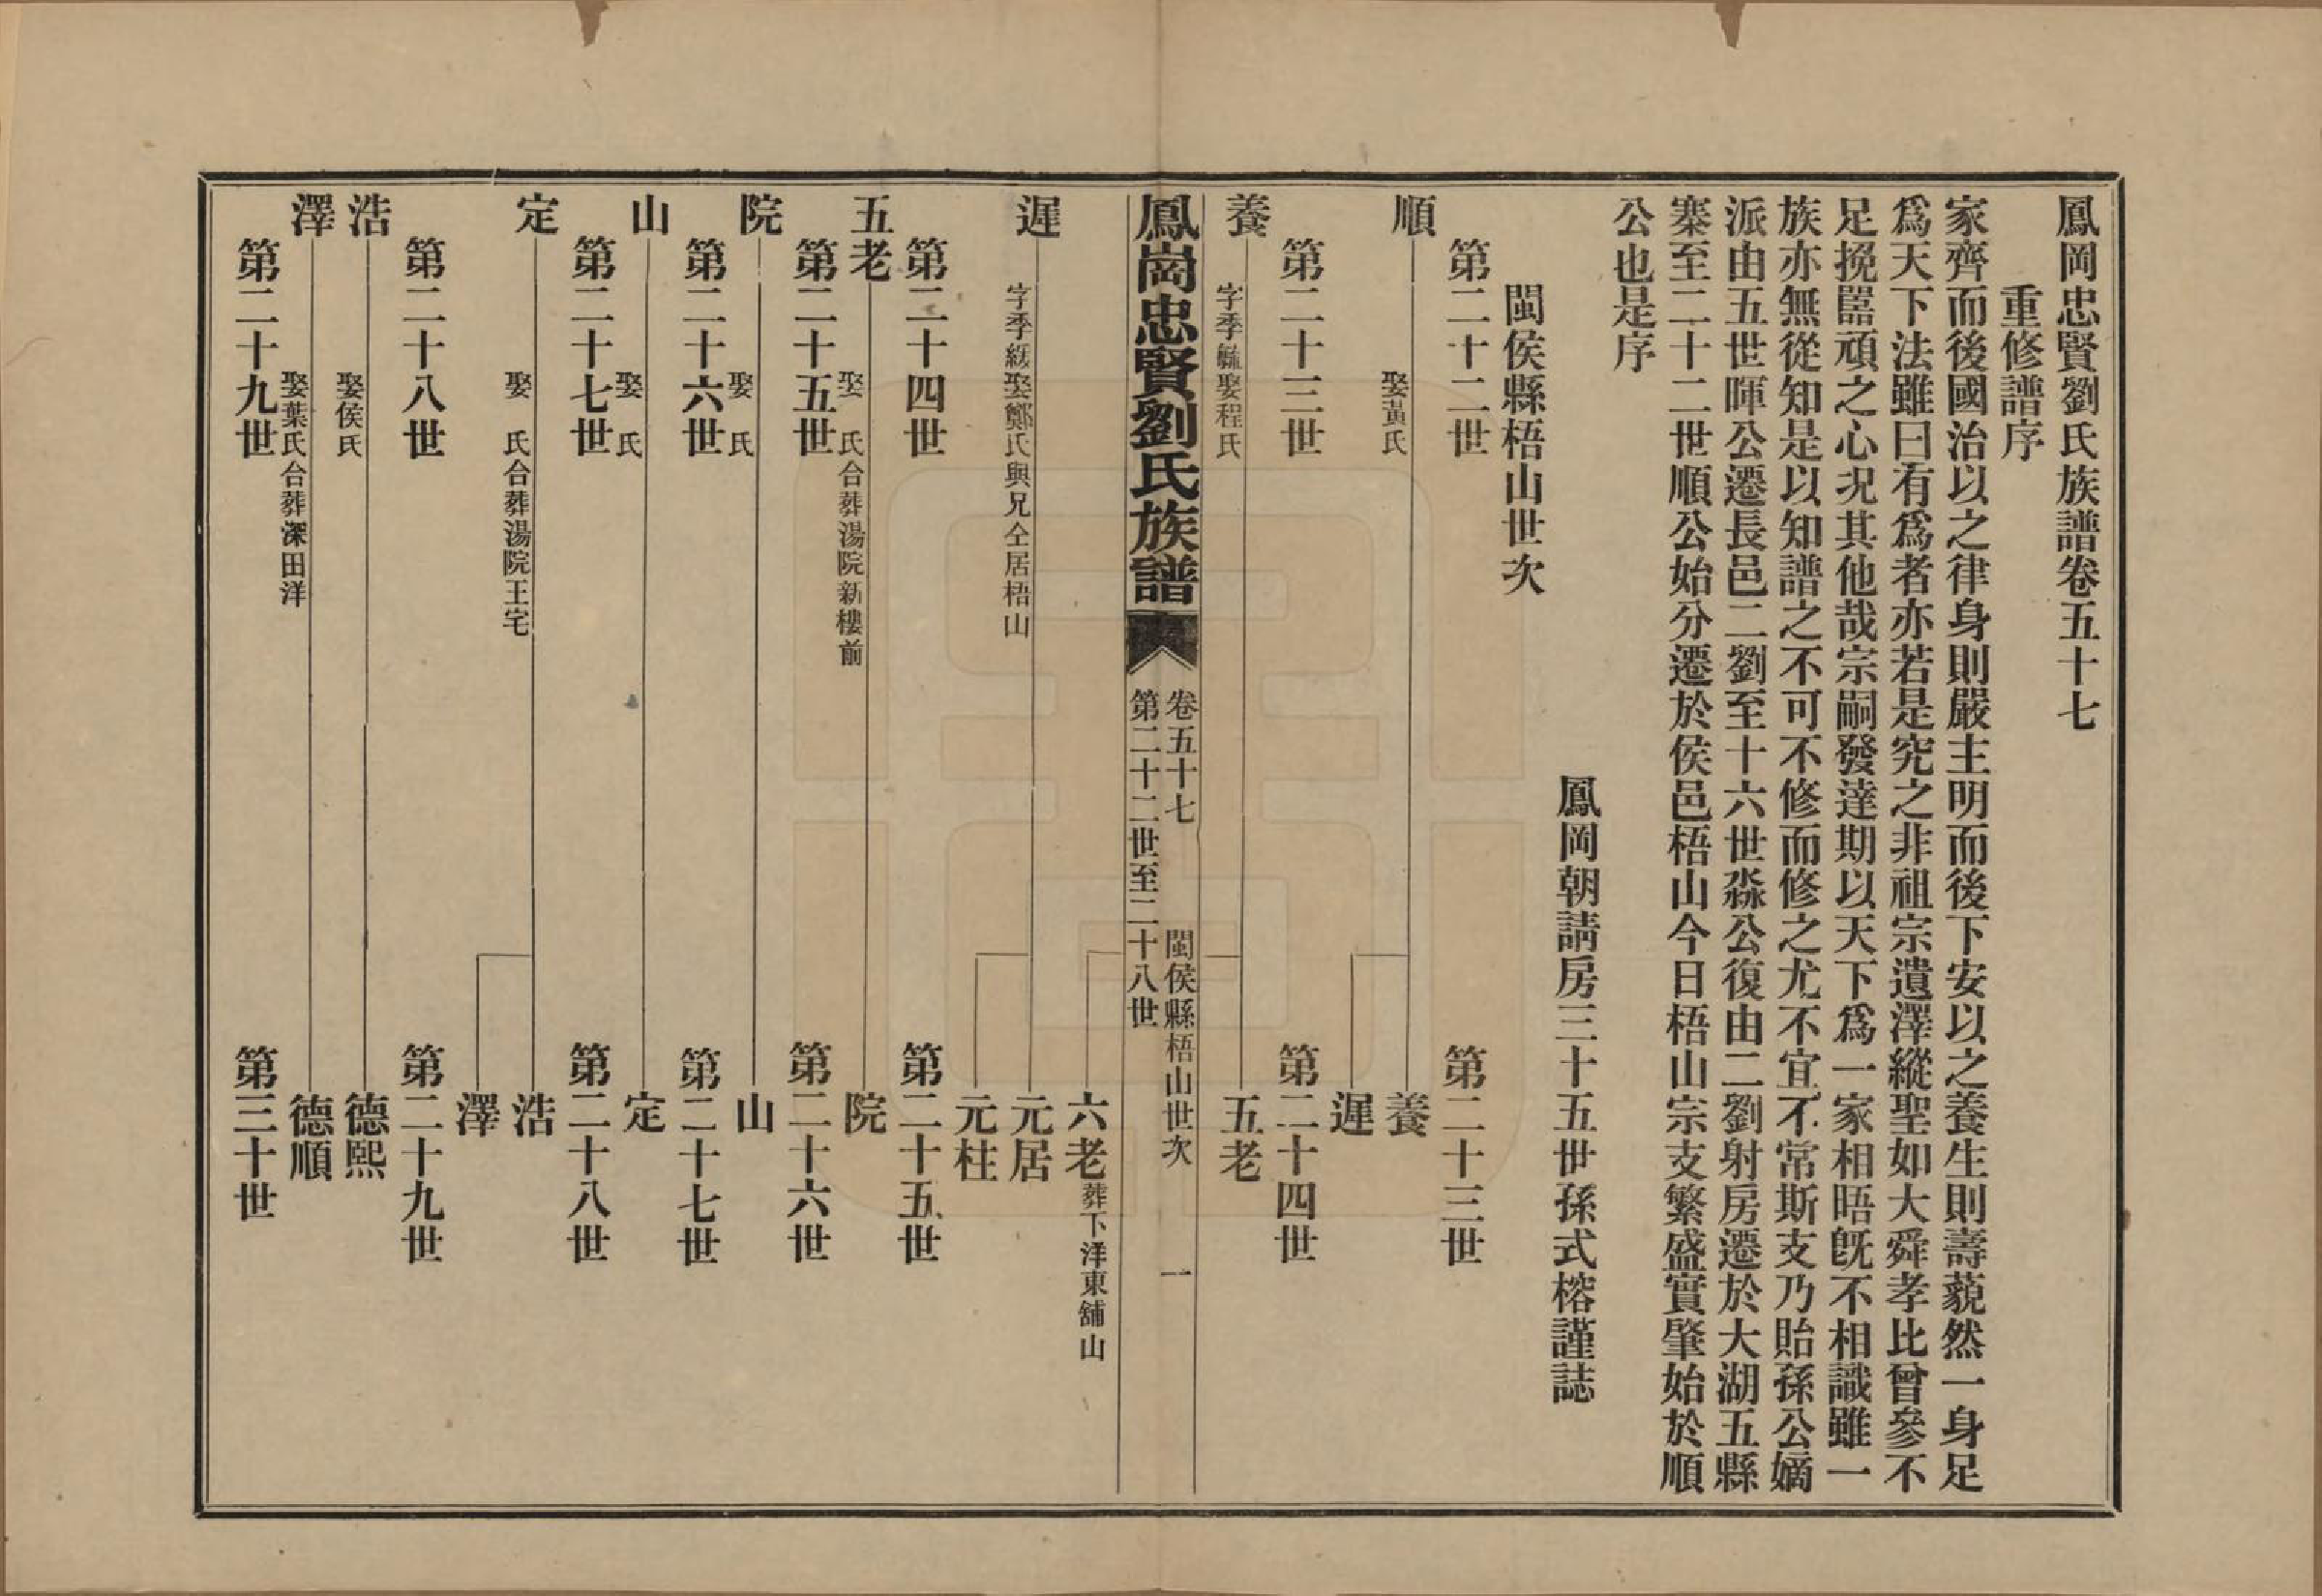 鳳岡忠賢劉氏族譜卷五十七
重修譜序
家齊而後國治以之律身則嚴主明而後下安以之養生則壽藐然一身足
爲天下法雖曰有爲者亦若是究之非祖宗遺澤縱聖如大舜孝比曾參不
足挽嚚頑之心况其他哉宗嗣發達期以天下爲一家相晤旣不相識雖一
族亦無從知是以知譜之不可不修而修之尤不宜不常斯支乃貽孫公嫡
派由五世暉公遷長邑二劉至十六世淼公復由二劉射房遷於大湖五縣
寨至二十二世順公始分遷於侯邑梧山今日梧山宗支繁盛實肇始於順
公也是序
鳳岡朝請房三十五世孫式榕謹誌
閩侯縣梧山世次
第二十二世 第二十三世
順 娶黃氏 養
遲
第二十三世 第二十四世
養 字季毓娶程氏 五老
鳳崗忠賢劉氏族譜
卷五十七 閩侯縣梧山世次 一
第二十二世至二十八世
六老葬下洋東舖山
遲 字季緩娶鄭氏與兄仝居梧山 元居
元柱
第二十四世 第二十五世
五老 娶 氏合葬湯院新樓前 院
第二十五世 第二十六世
院 娶 氏 山
第二十六世 第二十七世
山 娶 氏 定
第二十七世 第二十八世
定 娶 氏合葬湯院王宅 浩
澤
第二十八世 第二十九世
浩 娶侯氏 德熙
澤 娶葉氏合葬深田洋 德順
第二十九世 第三十世